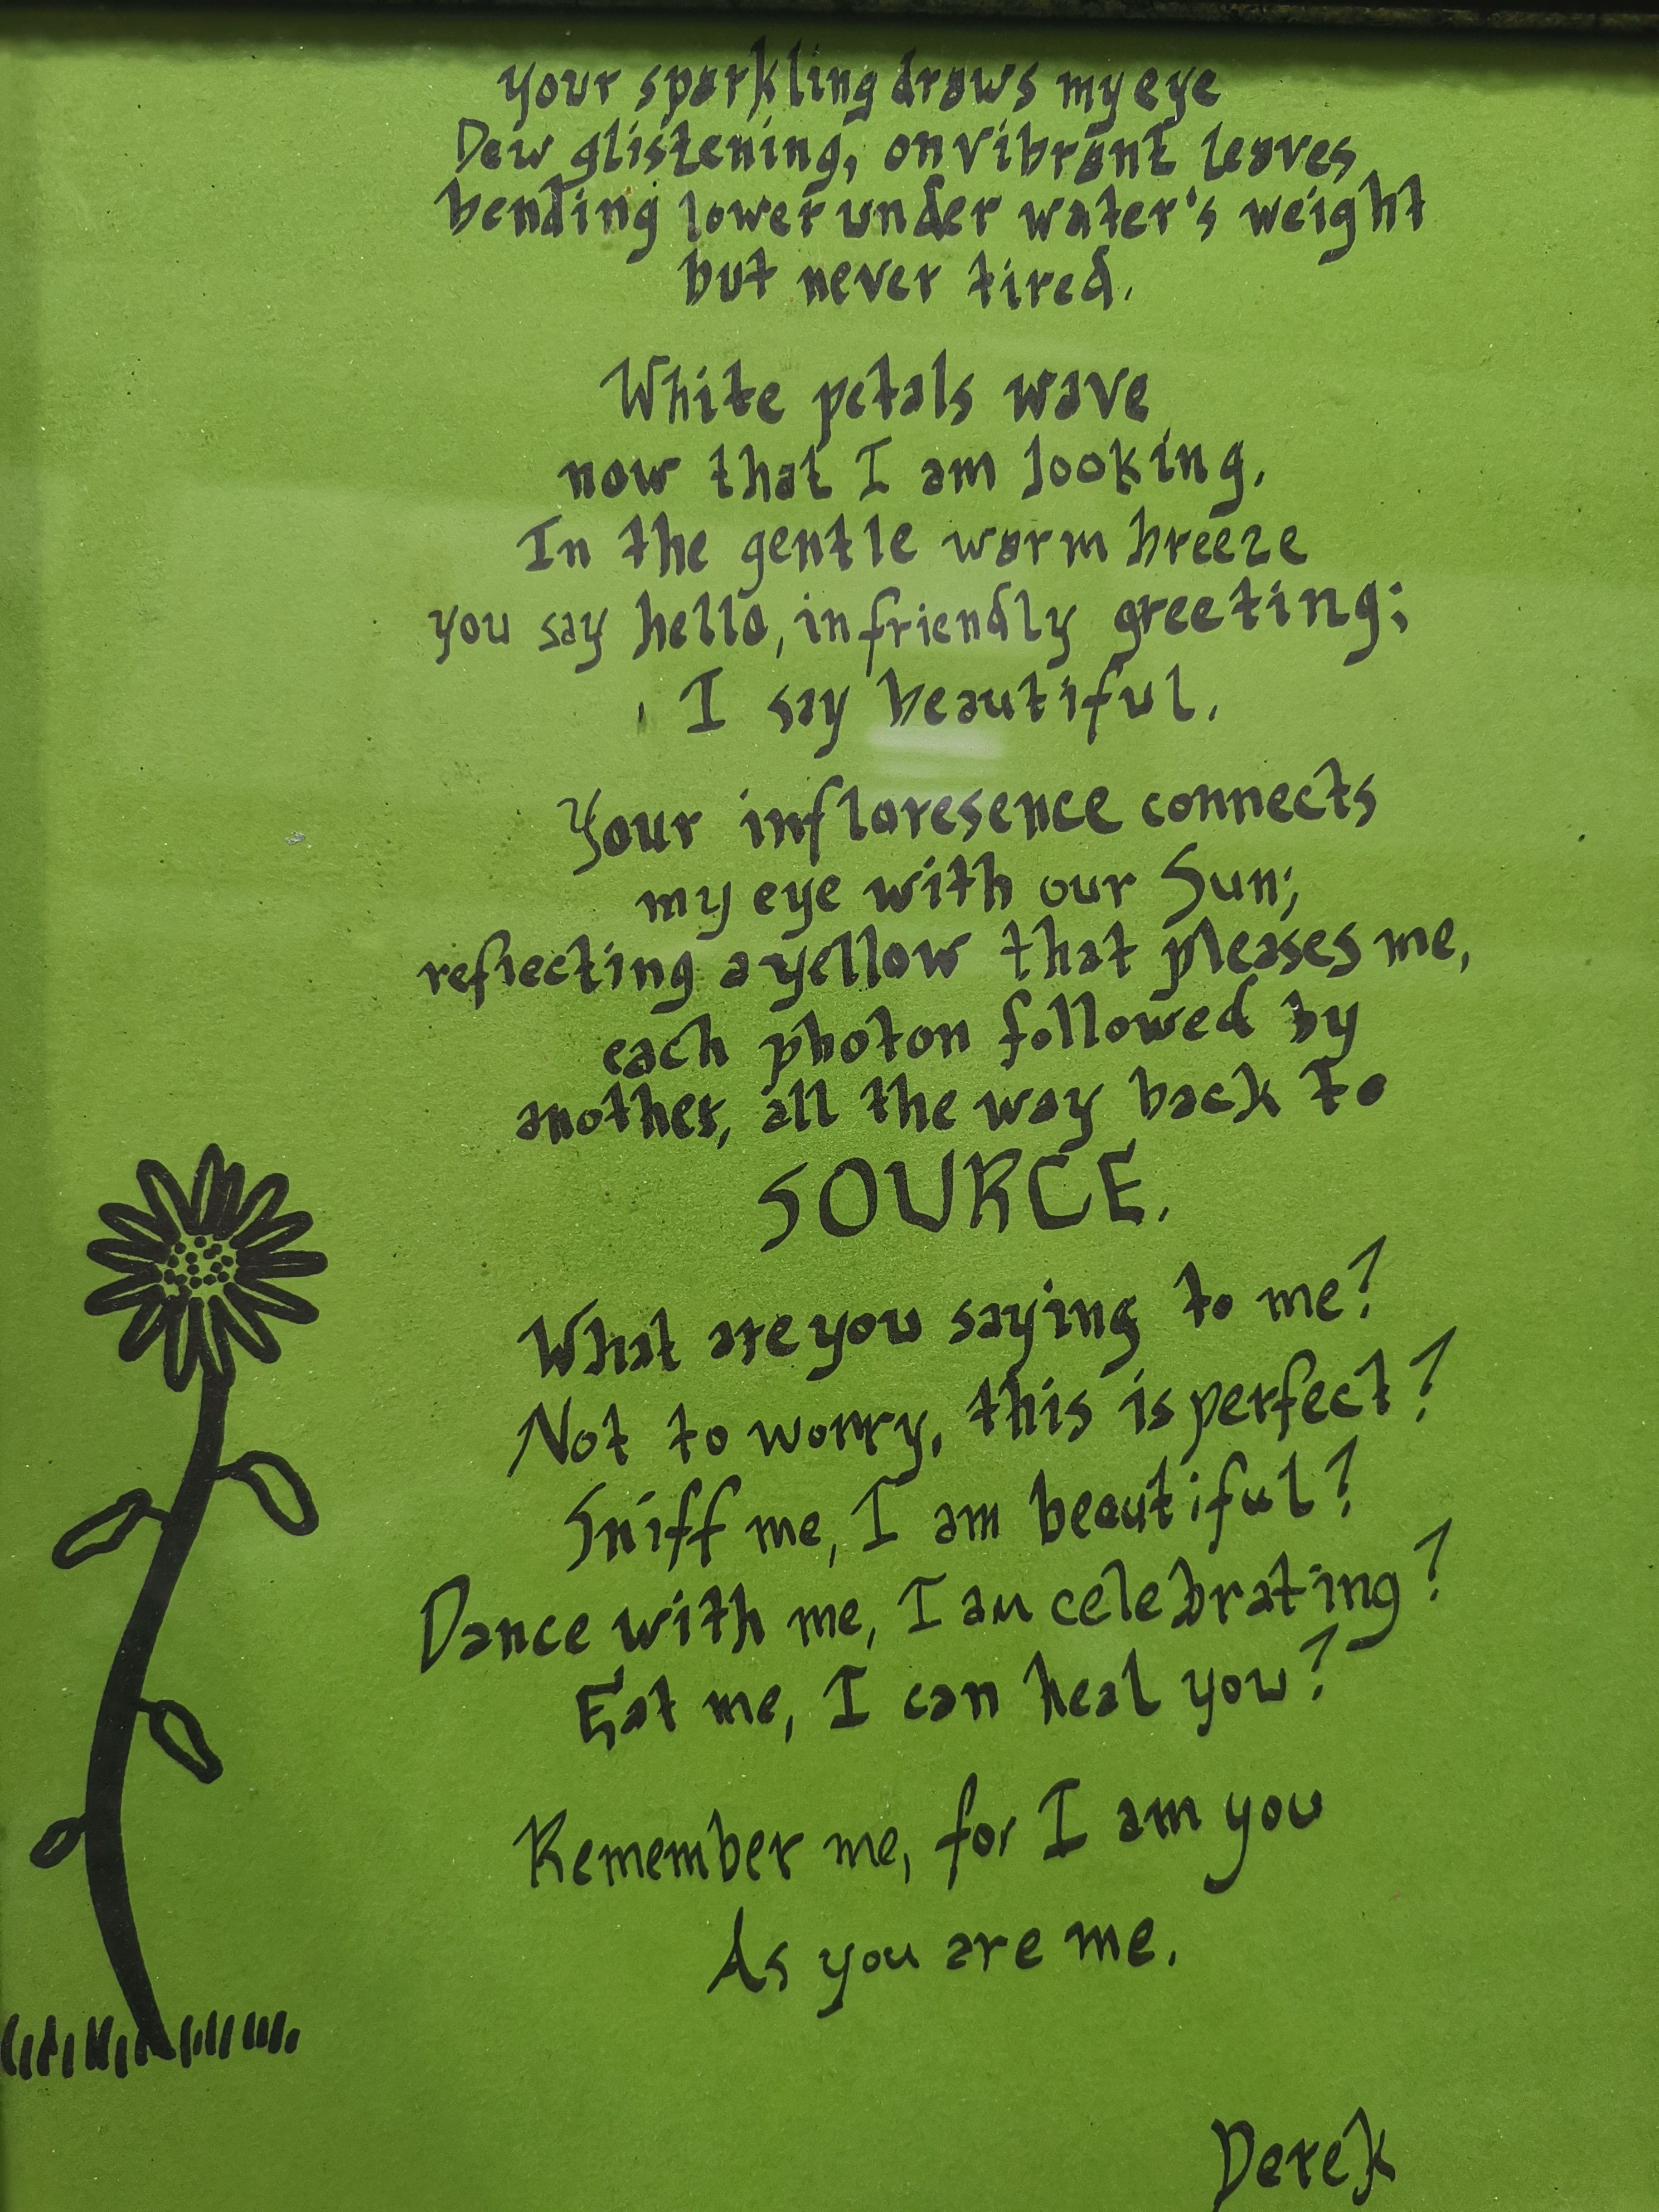 Your sparkling draws my eye
Dew glistening, on vibrant leaves
bending lower under water's weight
but never tired.
White petals wave
now that I am looking.
In the gentle warm breeze
you say hello, in friendly greeting;
I say beautiful.
Your infloresence connects
my eye with our Sun;
reflecting a yellow that pleases me,
each photon followed by
another, all the way back to
SOURCE.
What are you saying to me?
Not to worry, this is perfect?
Sniff me, I am beautiful?
Dance with me, I am celebrating?
Eat me, I can heal you?
Remember me, for I am you
As you are me.
Derek